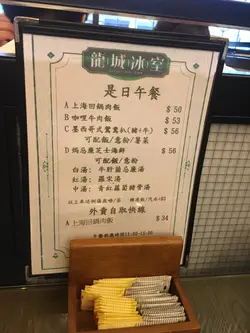 龍城冰室
是日午餐
A 上海回鍋肉飯 $ 50
B 咖喱牛肉飯 $ 53
C 墨西哥式鴛鴦扒(豬+牛) $ 56
可配飯/意粉/薯菜
D 焗忌廉芝士海鮮 $ 56
可配飯/意粉
白湯: 牛肝菌忌廉湯
紅湯: 羅宋湯
中湯: 青紅蘿蔔豬骨湯
外賣自取快線
A 上海回鍋肉飯 $ 34